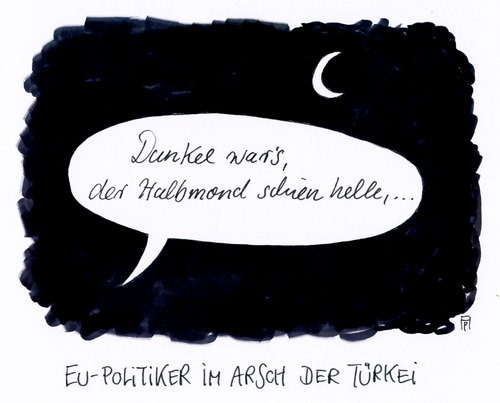 Dunkel war's,
der Halbmond schien helle,...
EU-POLITIKER IM ARSCH DER TÜRKEI